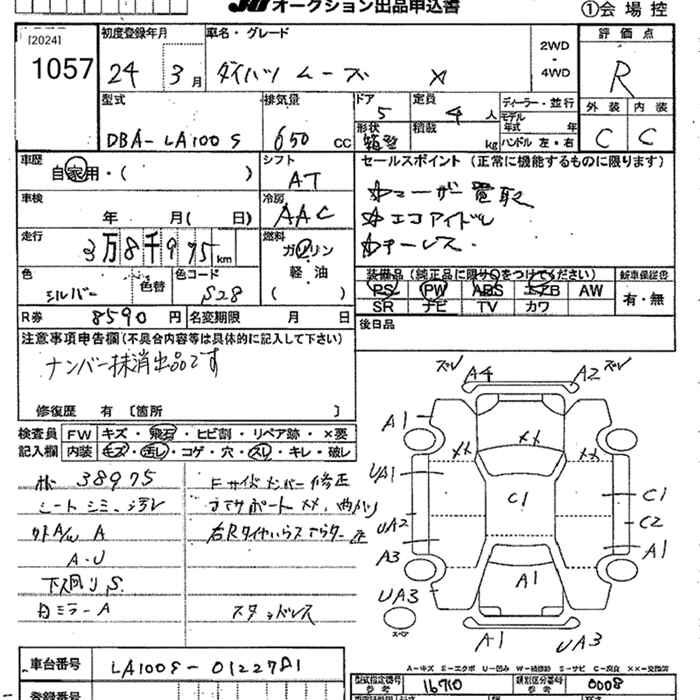 オークション出品申込書
①会場控
[2024]
1057
初度登録年月
24 3月
車名・グレード
ダイハツ ムーヴ X
2WD
・
4WD
評価点
R
型式
DBA-LA100S
排気量
650 CC
ドア
5
定員
4 人
形状
箱型
積載
kg
ディーラー・並行
モデル年式 年
ハンドル 左・右
外装 内装
C C
車歴
自家用・( )
シフト
AT
車検
年 月( 日)
冷房
AAC
走行
3万8千975 km
燃料
ガソリン
軽・油
( )
色
シルバー
色替
色コード
S28
R券 8590 円
名変期限 月 日
セールスポイント(正常に機能するものに限ります)
☆ユーザー買取
☆エコアイドル
☆キーレス
装備品(純正品に限り○をつけてください)
新車保証書
PS PW ABS エアB AW
SR ナビ TV カワ
有・無
後日品
注意事項申告欄(不具合内容等は具体的に記入して下さい)
ナンバー抹消出品です
修復歴 有 〔箇所 〕
検査員 FW キズ・飛石・ヒビ割・リペア跡・×要
記入欄 内装 キズ・汚レ・コゲ・穴・スレ・キレ・破レ
38975
シート シミ 汚レ
外A/W A
A-U
下回り S
スタッドレス
ズレ A4 A2 ズレ
A1
メメ メメ メメ
UA1
C1
C1
UA2
C2
A3
A1
A1
UA3
スペア
A1
UA3
A-キズ E-エクボ U-凹み W-補修跡 S-サビ C-腐食 XX-交換済
車台番号 LA100S-0122781
型式指定番号 参考 16710
類別区分番号 参考 0008
登録番号